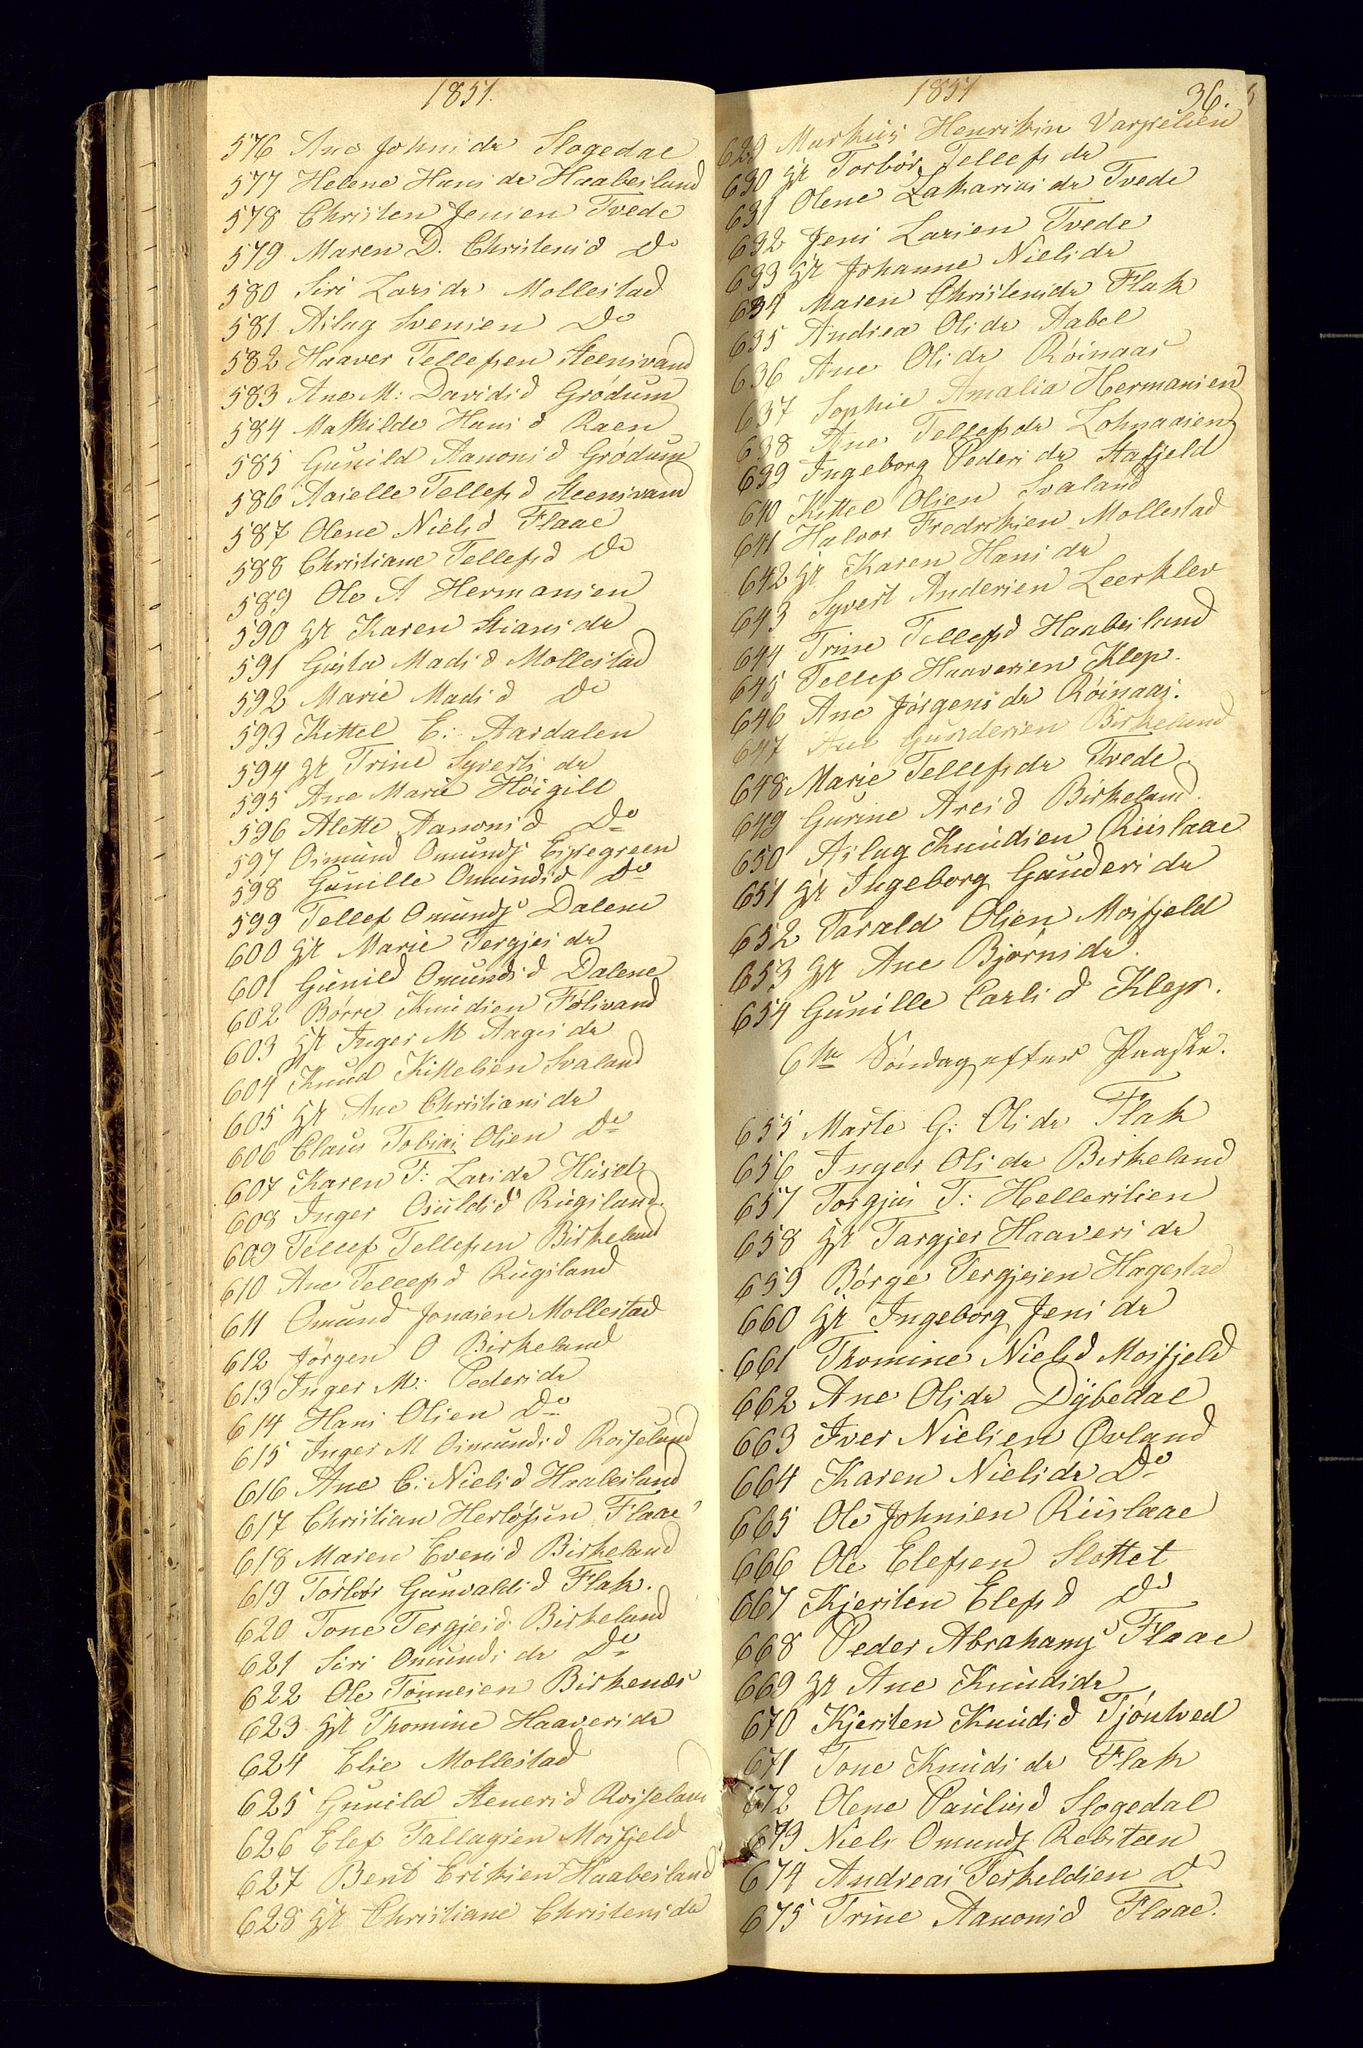 1851.
576 Ane Johnsdr Slogedal
577 Helene Hansdr Haabesland
578 Christen Jensen Tvede
579 Maren D. Christensd Do
580 Siri Larsdr Mollestad
581 Aslag Svensen Do
582 Haaver Tellefsen Steensvand
583 Ane M: Davidsd Grödum
584 Mathilde Hansd Raen
585 Gunild Aanonsd Grödum
586 Asielle Tellefsd Steensvand
587 Olene Nielsd Flaae
588 Christiane Tellefsd Do
589 Ole A Hermansen
590 Hr Karen Stiansdr
591 Gusta Madsd Mollestad
592 Marie Madsd Do
593 Kittel E: Aardalen
594 Hr Trine Syvertsdr
595 Ane Marie Höigilt
596 Alette Aanonsd Do
597 Osmund Omunds Espegreen
598 Gunille Omundsd Do
599 Tellef Omunds Dalene
600 Hr Marie Tergjesdr
601 Gunild Omundsd Dalene
602 Börre Knudsen Fölivand
603 Hr Inger M Aagesdr
604 Knud Kittelsen Svaland
605 Hr Ane Christiansdr
606 Claus Tobias Olsen Do
607 Karen T: Larsdr Huset
608 Inger Osuldsd Rugsland
609 Tellef Tellefsen Birkeland
610 Ane Tellefsd Rugsland
611 Omund Jonasen Mollestad
612 Jörgen O Birkeland
613 Inger M: Pedersdr
614 Hans Olsen Do
615 Inger M Osmundsd Roiseland
616 Ane C: Nielsd Haabesland
617 Christian Herlofsen Flaae
618 Maren Evensd Birkeland
619 Torbör Gunvaldsd Flak.
620 Tone Tergjesd. Birkeland
621 Siri Omundsdr Do
622 Ole Tönnesen Birkenæs
623 Hr Thomine Haaversdr
624 Elie Mollestad
625 Gunild Stenersd Roiseland
626 Elef Tallagsen Mosfjeld
627 Bent Eriksen Haabesland
628 Hr Christiane Christensdr
1851 36.
629 Markus Henriksen Varpelien
630 Hr Torbör Tellefsdr
631 Olene Zakariasdr Tvede
632 Jens Larsen Tvede
633 Hr Johanne Nielsdr
634 Maren Christensdr Flak
635 Andrea Olsdr Aabel
636 Ane Olsdr Röinaas
637 Sophie Amalia Hermansen
638 Ane Tellefsdr Lohnaasen
639 Ingeborg Pedersdr Stafjeld
640 Kittel Olsen Svaland
641 Halvor Fredriksen Mollestad
642 Hr Karen Hansdr
643 Syvert Andersen Leerklev
644 Trine Tellefsd Haabesland
645 Tellef Haaversen Klep.
646 Ane Jörgensdr Röinaas.
647 Ane Gundersen Birkeland
648 Marie Tellefsdr Tvede.
649 Gurine Aresd Birkeland.
650 Aslag Knudsen Riislaae
651 Hr Ingeborg Gundersdr
652 Tarald Olsen Mosfjeld
653 Hr Ane Bjørnsdr.
654 Gunille Carlsd Klep.
6te Söndag efter Paaske.
655 Marte G: Olsdr Flak
656 Inger Olsdr Birkeland
657 Torgjus T: Hellerslien
658 Hr Targjer Haaversdr
659 Börge Tergjesen Hagestad
660 Hr Ingeborg Jensdr
661 Thomine Nielsd Mosfjeld
662 Ane Olsdr Dybedal
663 Iver Nielsen Øvland
664 Karen Nielsdr Do
665 Ole Johnsen Riislaae
666 Ole Elefsen Slottet
667 Kjersten Elefsd Do
668 Peder Abrahams Flaae
669 Hr Ane Knudsdr
670 Kjersten Knudsd Tjöntved
671 Tone Knudsdr Flak
672 Olene Paulusd Slogedal
673 Niels Omunds Rebsteen
674 Andreas Terkeldsen Do
675 Trine Aanonsd Flaae.